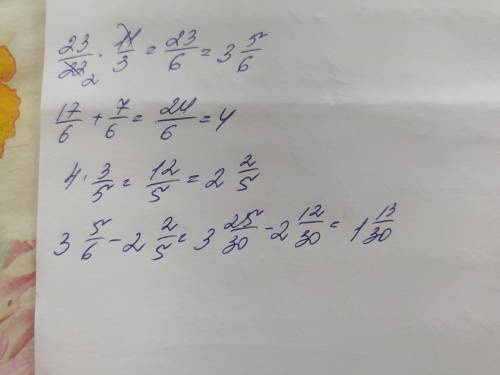 23/22 2 · 11/3 = 23/6 = 3 5/6
17/6 + 7/6 = 24/6 = 4
4 · 3/5 = 12/5 = 2 2/5
3 5/6 - 2 2/5 = 3 25/30 - 2 12/30 = 1 13/30